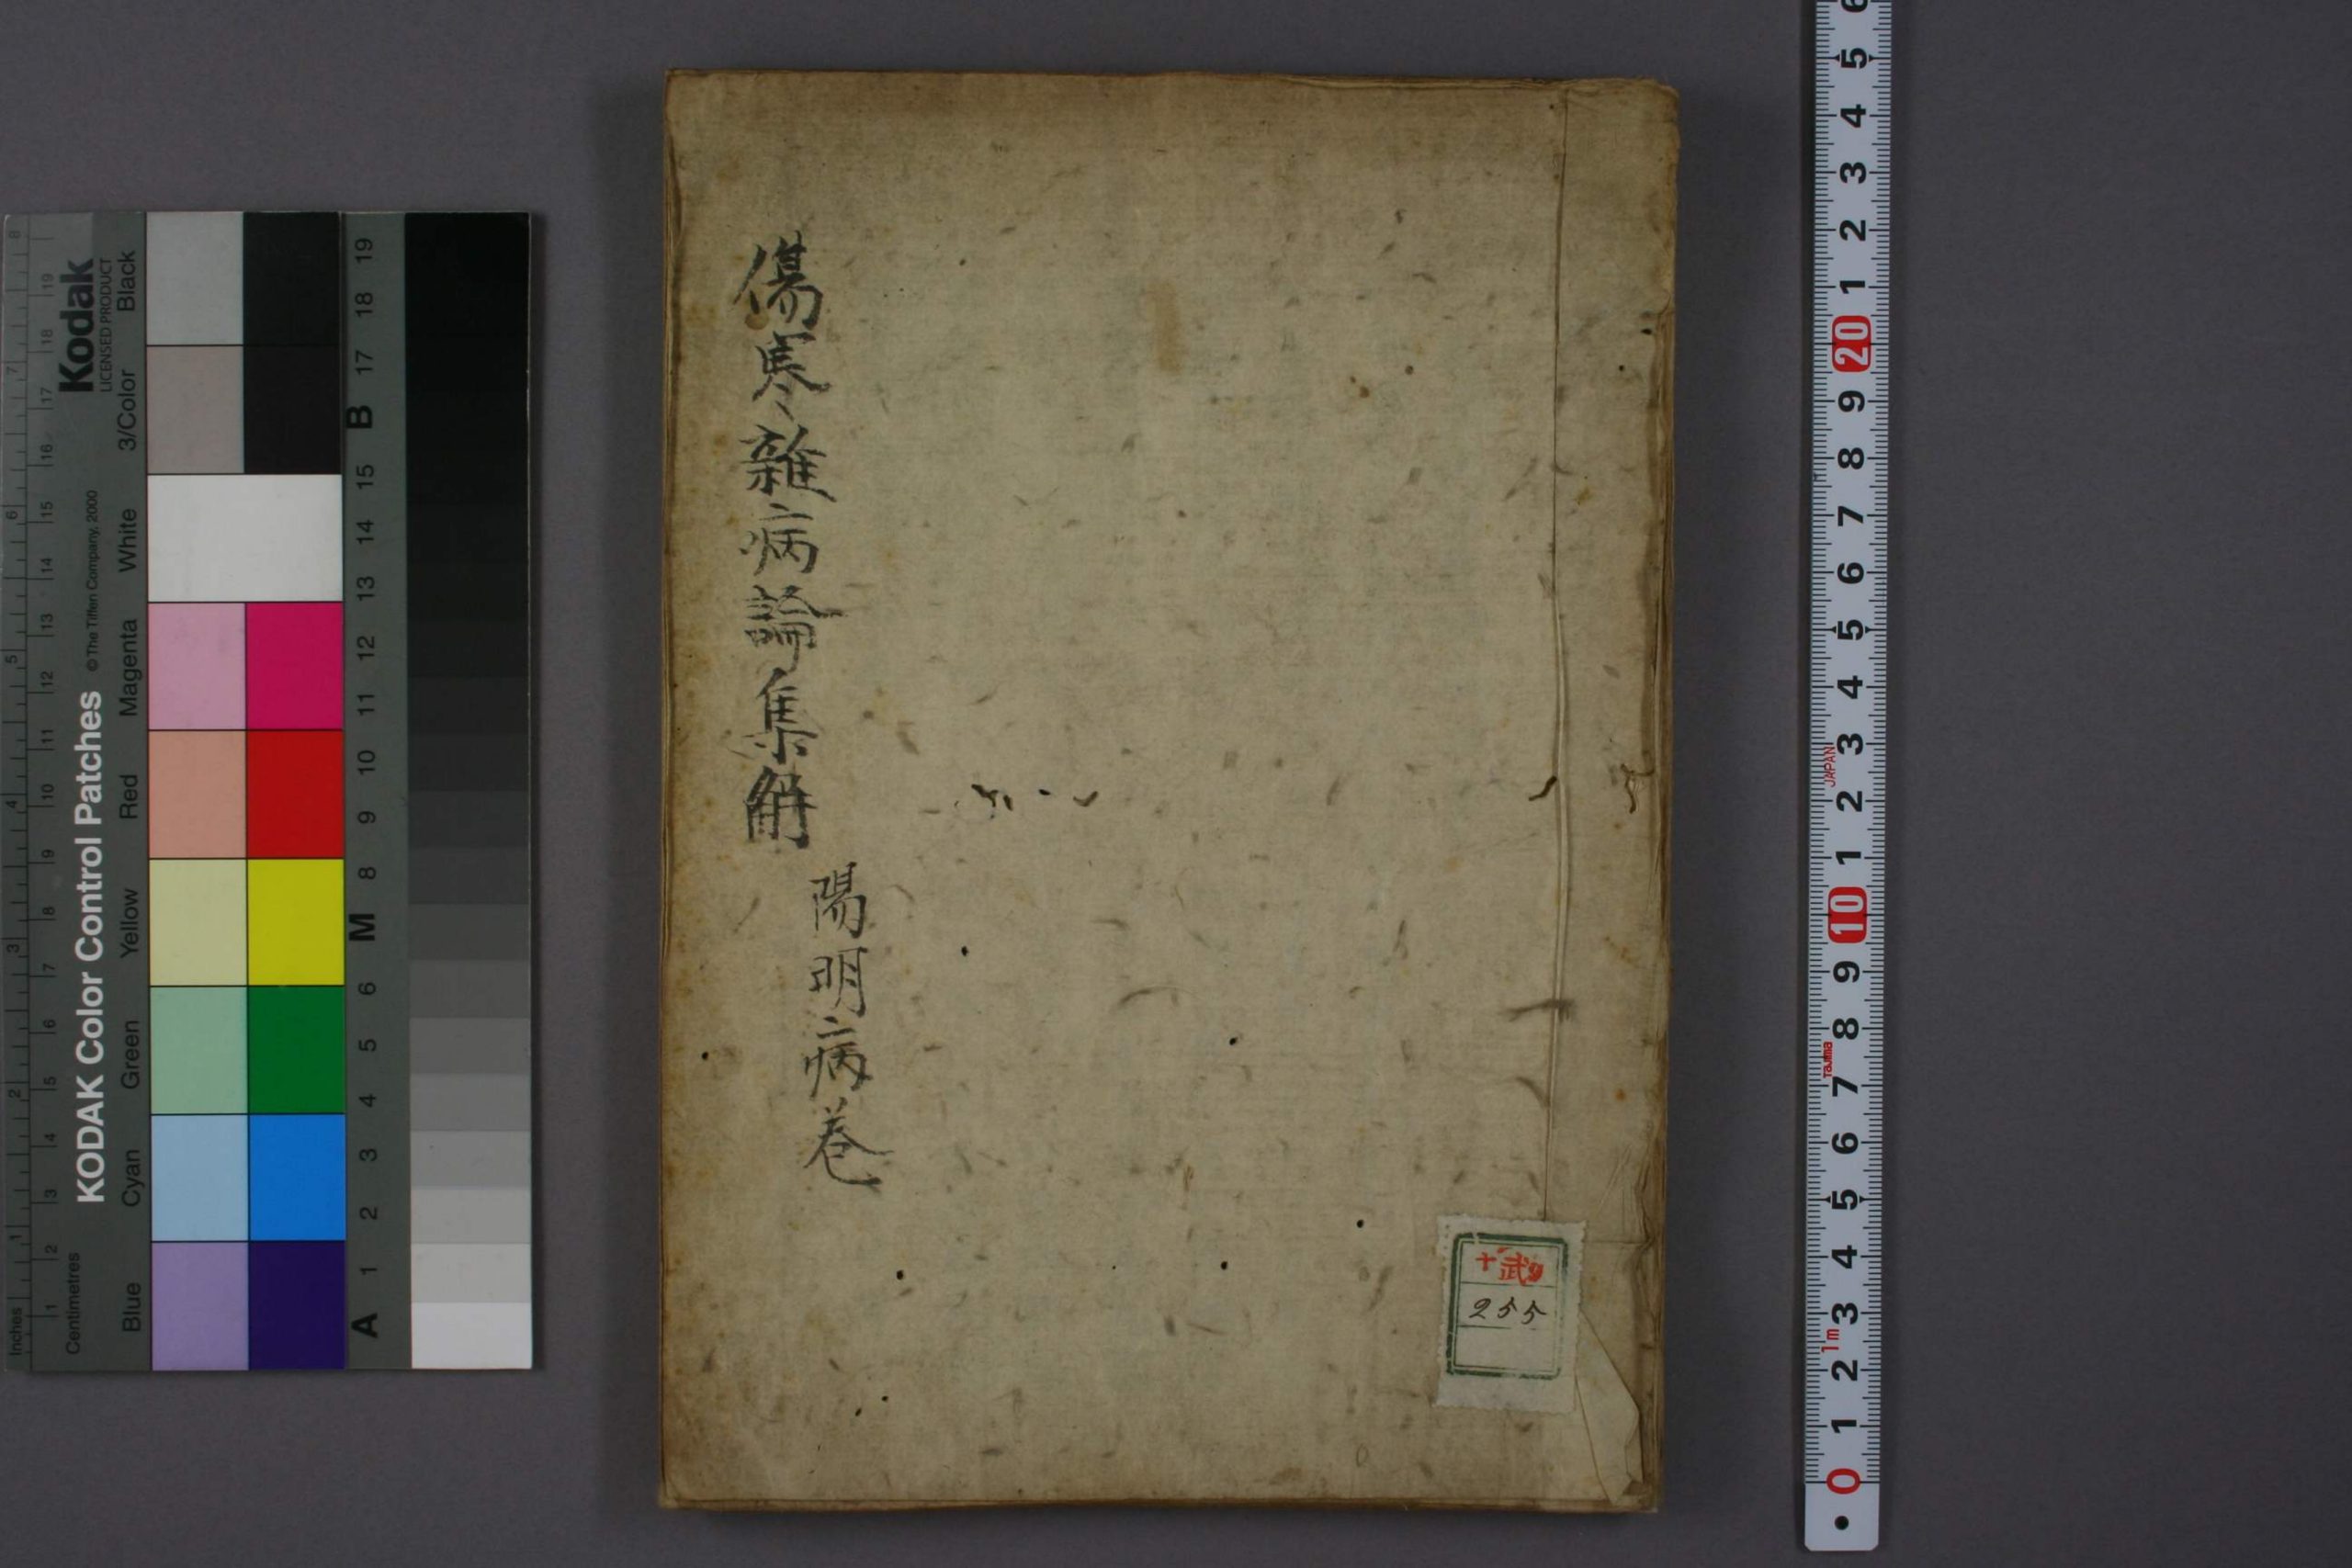 傷寒雜病論集解
陽明病巻
十武
255
Kodak
LICENSED PRODUCT
KODAK Color Control Patches
© The Tiffen Company, 2000
Inches
Centimetres
Blue Cyan Green Yellow Red Magenta White 3/Color Black
A 1 2 3 4 5 6 M 8 9 10 11 12 13 14 15 B 17 18 19
6
5
4
3
2
1
20
9
8
7
6
5
4
3
JAPAN
2
1
10
9
8
Tajima
7
6
5
4
3
1m
2
1
0